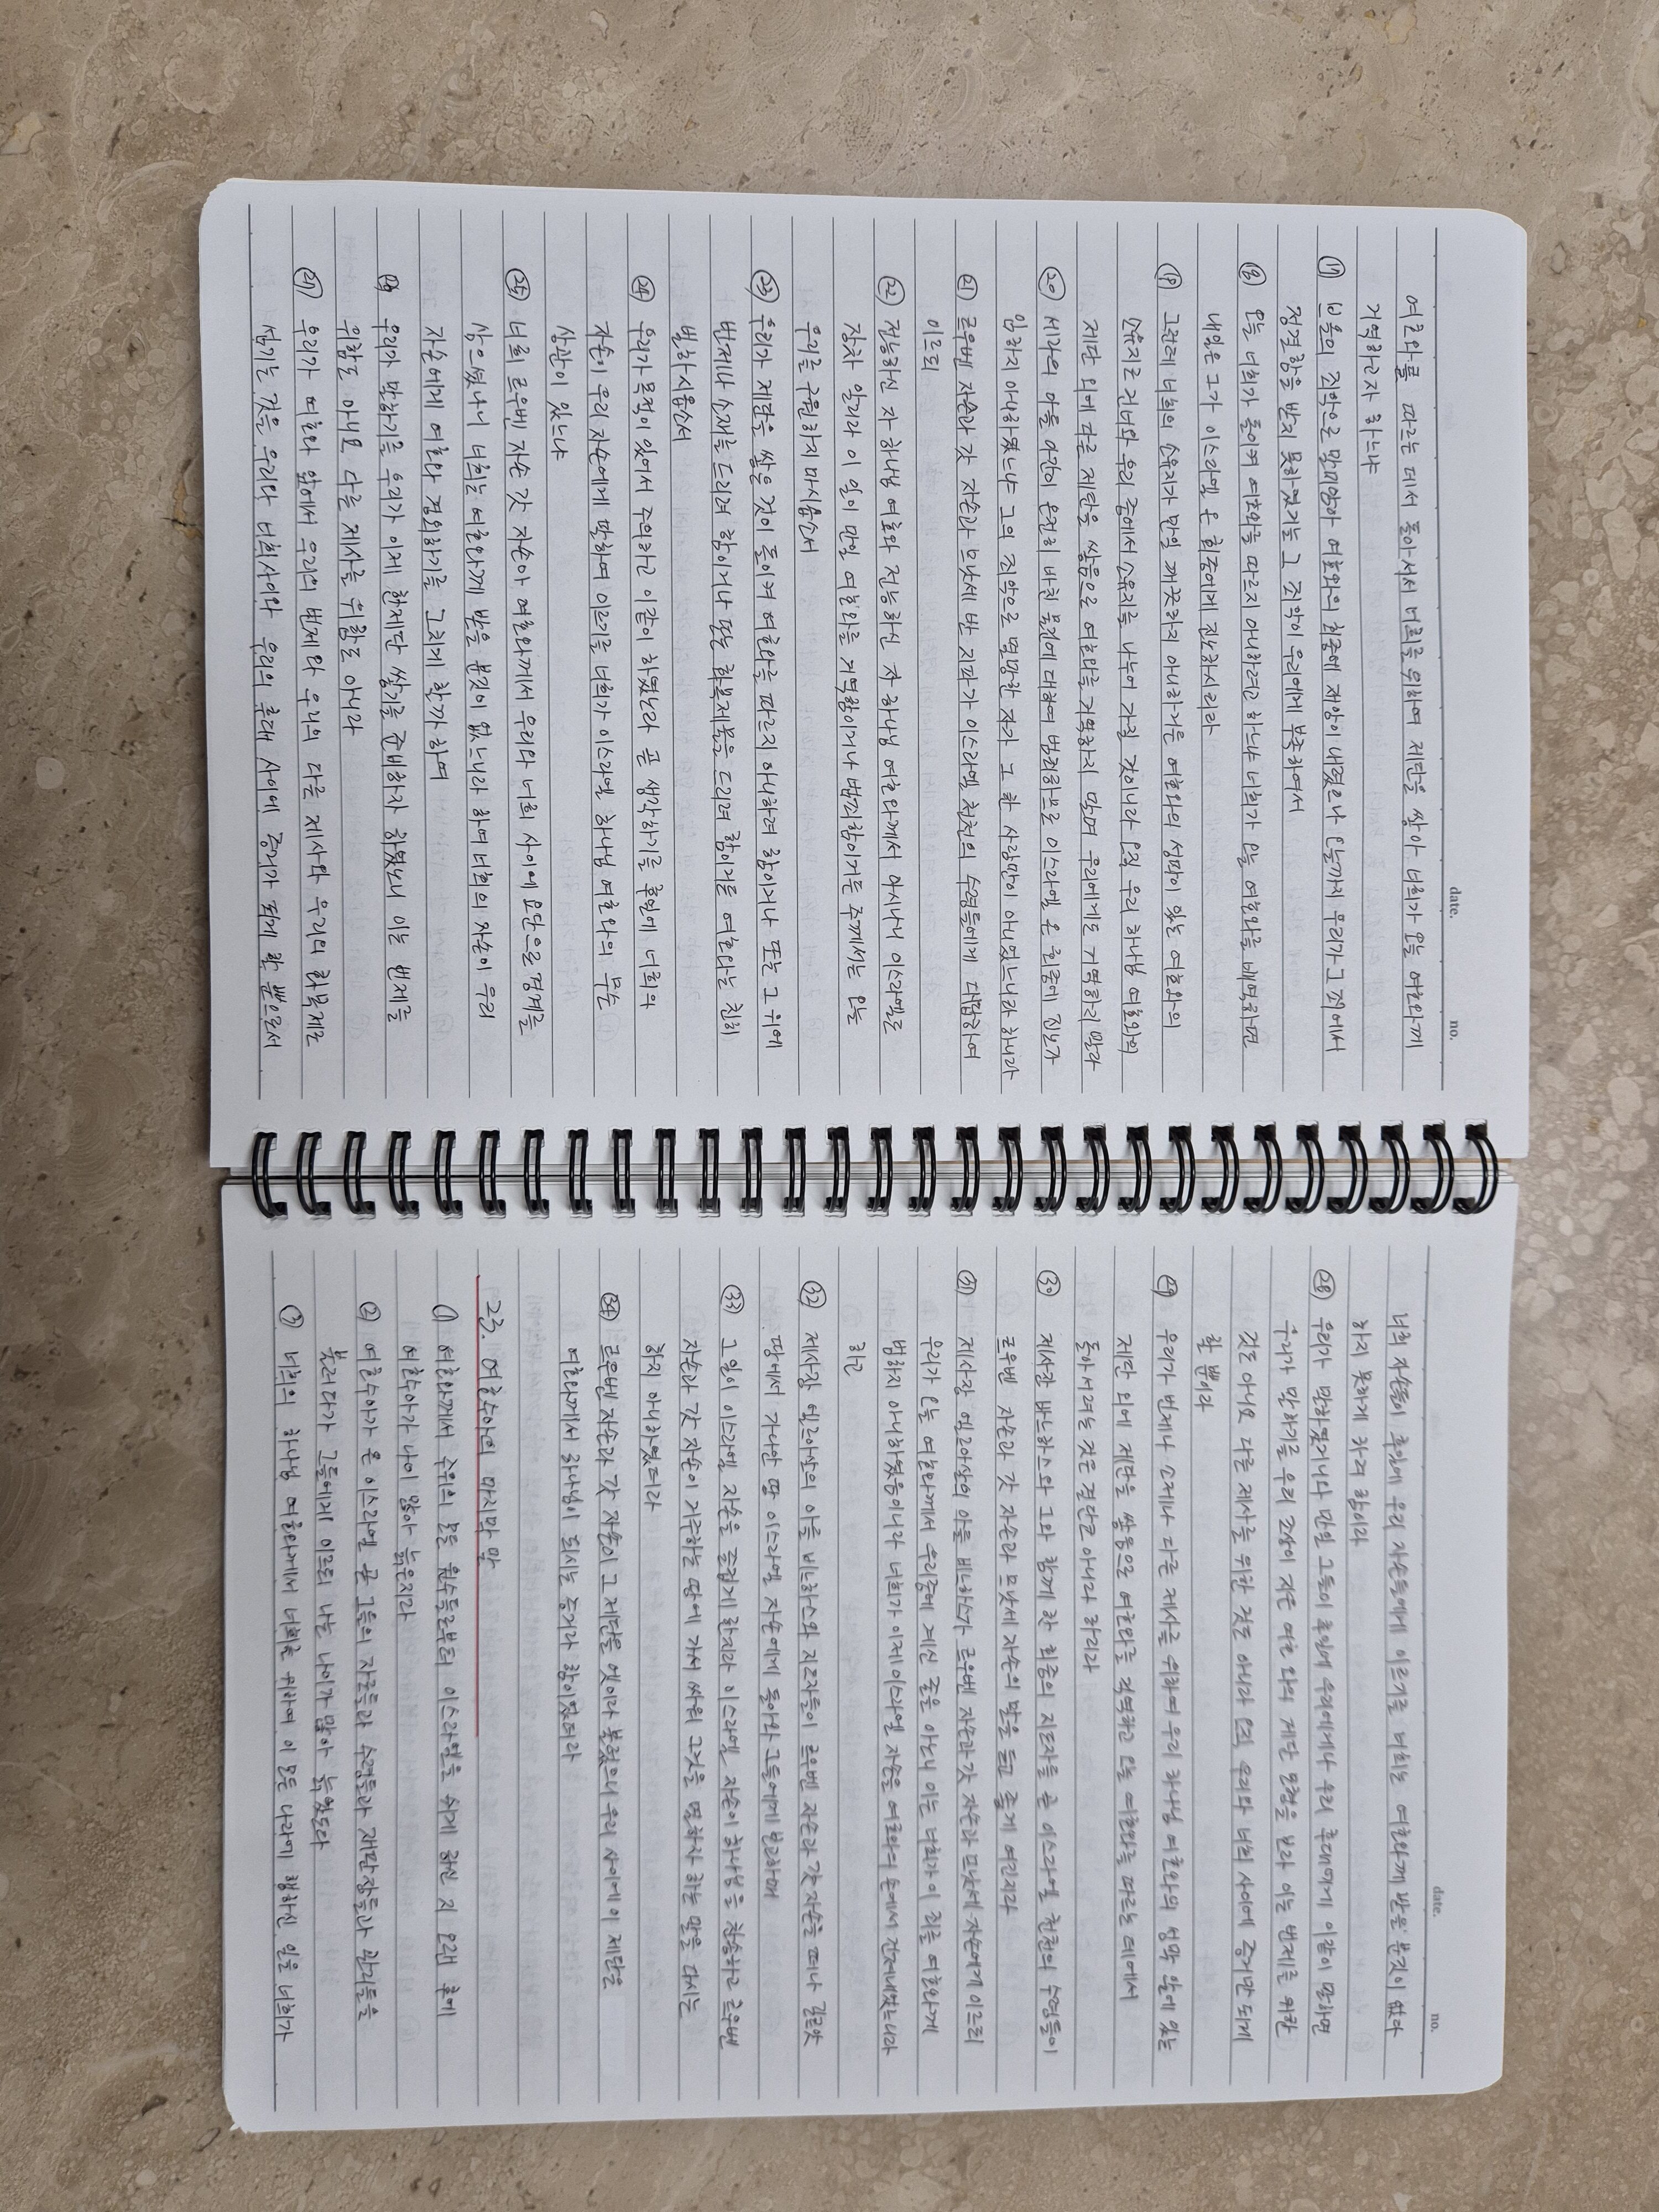 date. no.
여호와를 따르는 데서 돌아서서 너희를 위하여 제단을 쌓아 너희가 오늘 여호와께
거역하고자 하느냐
⑰ 브올의 죄악으로 말미암아 여호와의 회중에 재앙이 내렸으나 오늘까지 우리가 그 죄에서
정결함을 받지 못하였거늘 그 죄악이 우리에게 부족하여서
⑱ 오늘 너희가 돌이켜 여호와를 따르지 아니하려고 하느냐 너희가 오늘 여호와를 배역하면
내일은 그가 이스라엘 온 회중에게 진노하시리라
⑲ 그런데 너희의 소유지가 만일 깨끗하지 아니하거든 여호와의 성막이 있는 여호와의
소유지로 건너와 우리 중에서 소유지를 나누어 가질 것이니라 오직 우리 하나님 여호와의
제단 외에 다른 제단을 쌓음으로 여호와를 거역하지 말며 우리에게도 거역하지 말라
⑳ 세라의 아들 아간이 온전히 바친 물건에 대하여 범죄하므로 이스라엘 온 회중에 진노가
임하지 아니하였느냐 그의 죄악으로 멸망한 자가 그 한 사람만이 아니었느니라 하니라
㉑ 르우벤 자손과 갓 자손과 므낫세 반 지파가 이스라엘 천천의 수령들에게 대답하여
이르되
㉒ 전능하신 자 하나님 여호와 전능하신 자 하나님 여호와께서 아시나니 이스라엘도
장차 알리라 이 일이 만일 여호와를 거역함이거나 범죄함이거든 주께서는 오늘
우리를 구원하지 마시옵소서
㉓ 우리가 제단을 쌓은 것이 돌이켜 여호와를 따르지 아니하려 함이거나 또는 그 위에
번제나 소제를 드리려 함이거나 또는 화목제물을 드리려 함이거든 여호와는 친히
벌하시옵소서
㉔ 우리가 목적이 있어서 주의하고 이같이 하였노라 곧 생각하기를 후일에 너희의
자손이 우리 자손에게 말하여 이르기를 너희가 이스라엘 하나님 여호와와 무슨
상관이 있느냐
㉕ 너희 르우벤 자손 갓 자손아 여호와께서 우리와 너희 사이에 요단으로 경계를
삼으셨나니 너희는 여호와께 받을 분깃이 없느니라 하여 너희의 자손이 우리
자손에게 여호와 경외하기를 그치게 할까 하여
㉖ 우리가 말하기를 우리가 이제 한 제단 쌓기를 준비하자 하였노니 이는 번제를
위함도 아니요 다른 제사를 위함도 아니라
㉗ 우리가 여호와 앞에서 우리의 번제와 우리의 다른 제사와 우리의 화목제로
섬기는 것을 우리와 너희 사이와 우리의 후대 사이에 증거가 되게 할 뿐으로서
date. no.
너희 자손들이 후일에 우리 자손들에게 이르기를 너희는 여호와께 받을 분깃이 없다
하지 못하게 하려 함이라
㉘ 우리가 말하였거니와 만일 그들이 후일에 우리에게나 우리 후대에게 이같이 말하면
우리가 말하기를 우리 조상이 지은 여호와의 제단 모형을 보라 이는 번제를 위한
것도 아니요 다른 제사를 위한 것도 아니라 오직 우리와 너희 사이에 증거만 되게
할 뿐이라
㉙ 우리가 번제나 소제나 다른 제사를 위하여 우리 하나님 여호와의 성막 앞에 있는
제단 외에 제단을 쌓음으로 여호와를 거역하고 오늘 여호와를 따르는 데에서
돌아서려는 것은 결단코 아니라 하리라
㉚ 제사장 비느하스와 그와 함께 한 회중의 지도자들 곧 이스라엘 천천의 수령들이
르우벤 자손과 갓 자손과 므낫세 자손의 말을 듣고 좋게 여긴지라
㉛ 제사장 엘르아살의 아들 비느하스가 르우벤 자손과 갓 자손과 므낫세 자손에게 이르되
우리가 오늘 여호와께서 우리 중에 계신 줄을 아노니 이는 너희가 이 죄를 여호와께
범하지 아니하였음이니라 너희가 이제 이스라엘 자손을 여호와의 손에서 건져내었느니라
하고
㉜ 제사장 엘르아살의 아들 비느하스와 지도자들이 르우벤 자손과 갓 자손을 떠나 길르앗
땅에서 가나안 땅 이스라엘 자손에게 돌아와 그들에게 보고하매
㉝ 그 일이 이스라엘 자손을 즐겁게 한지라 이스라엘 자손이 하나님을 찬송하고 르우벤
자손과 갓 자손이 거주하는 땅에 가서 싸워 그것을 멸하자 하는 말을 다시는
하지 아니하였더라
㉞ 르우벤 자손과 갓 자손이 그 제단을 엣이라 불렀으니 우리 사이에 이 제단은
여호와께서 하나님이 되시는 증거라 함이었더라
23. 여호수아의 마지막 말
① 여호와께서 주위의 모든 원수들로부터 이스라엘을 쉬게 하신 지 오랜 후에
여호수아가 나이 많아 늙은지라
② 여호수아가 온 이스라엘 곧 그들의 장로들과 수령들과 재판장들과 관리들을
불러다가 그들에게 이르되 나는 나이가 많아 늙었도다
③ 너희의 하나님 여호와께서 너희를 위하여 이 모든 나라에 행하신 일을 너희가